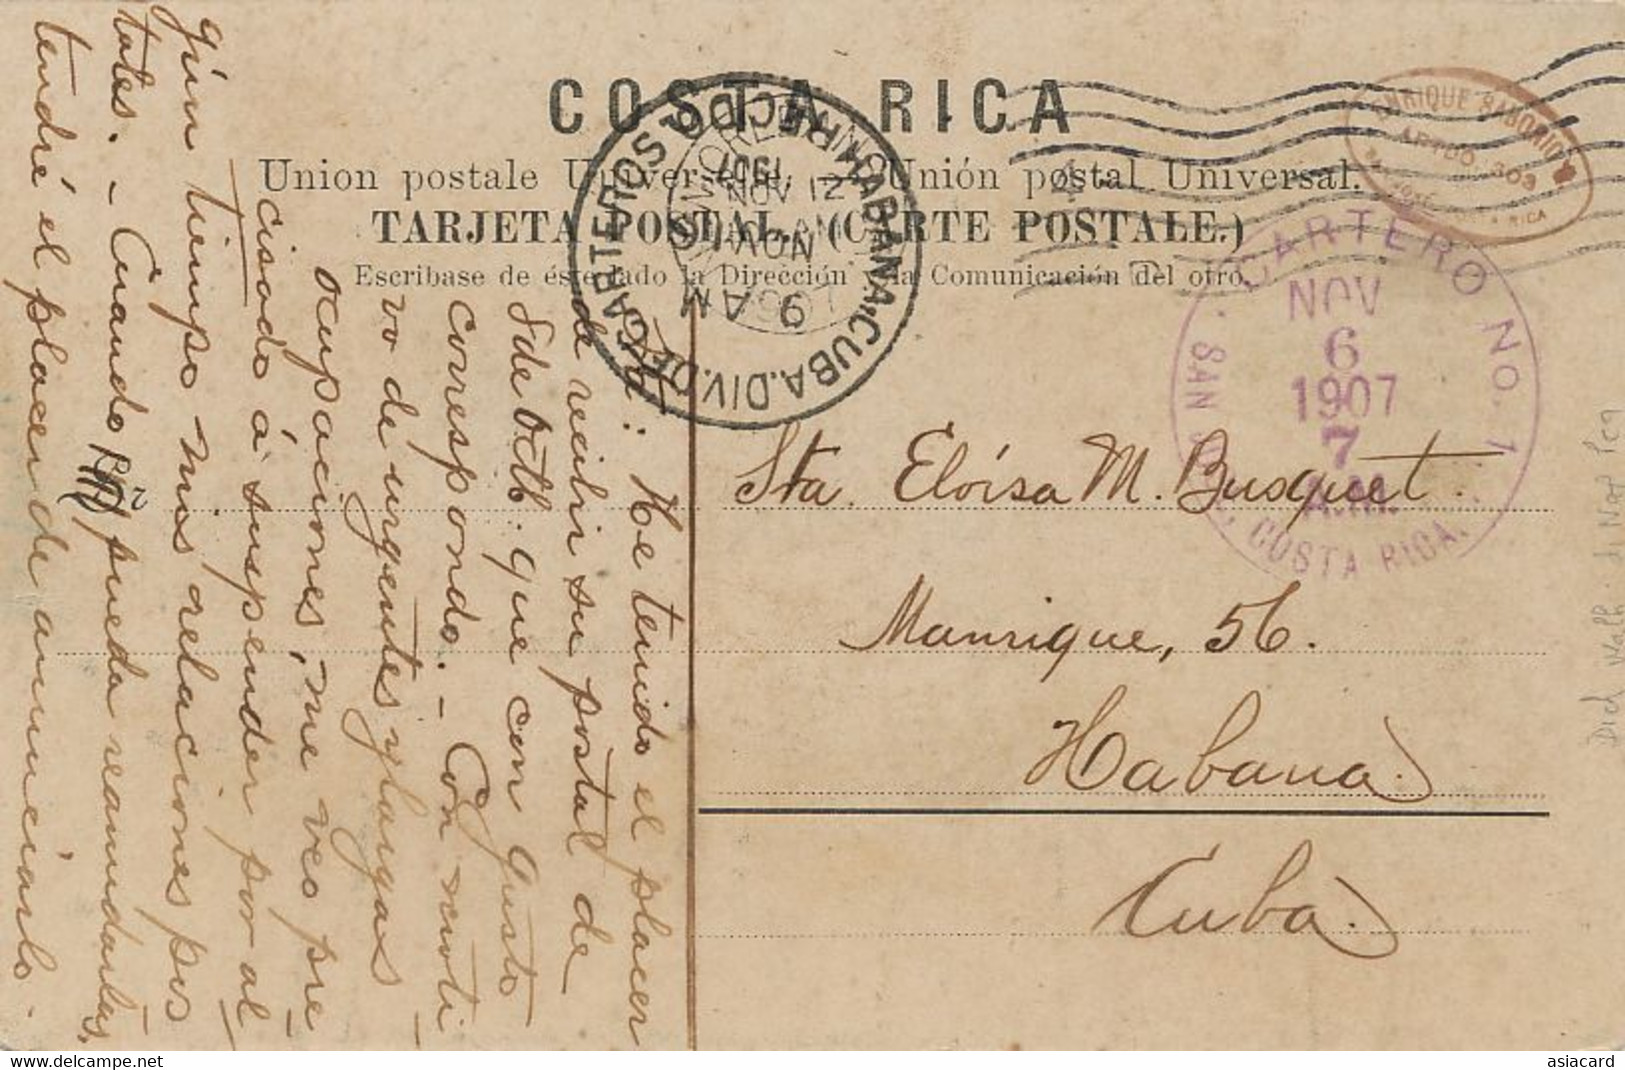 COSTA RICA
Union postale Universelle. — Unión postal Universal.
TARJETA POSTAL. (CARTE POSTALE.)
Escribase de éste lado la Dirección y la Comunicación del otro.
ENRIQUE SABORIO
ARTDO. 303
SAN JOSÉ, COSTA RICA
CARTERO No. 1
NOV
6
1907
7
A.M.
SAN JOSÉ, COSTA RICA.
RECD.
HABANA, CUBA. DIV. DE CARTEROS
1907
NOV 12
9 AM
Sta. Eloísa M. Busquet.
Manrique, 56.
Habana.
Cuba.
He tenido el placer
de recibir su postal de
5 de Octb. que con gusto
correspondo. - Con moti
vo de urgentes y largas
ocupaciones, me veo pre
cisado á suspender por al
gún tiempo mis relaciones pos
tales. - Cuando pueda reanudarlas,
tendré el placer de anunciárlo.
asiacard